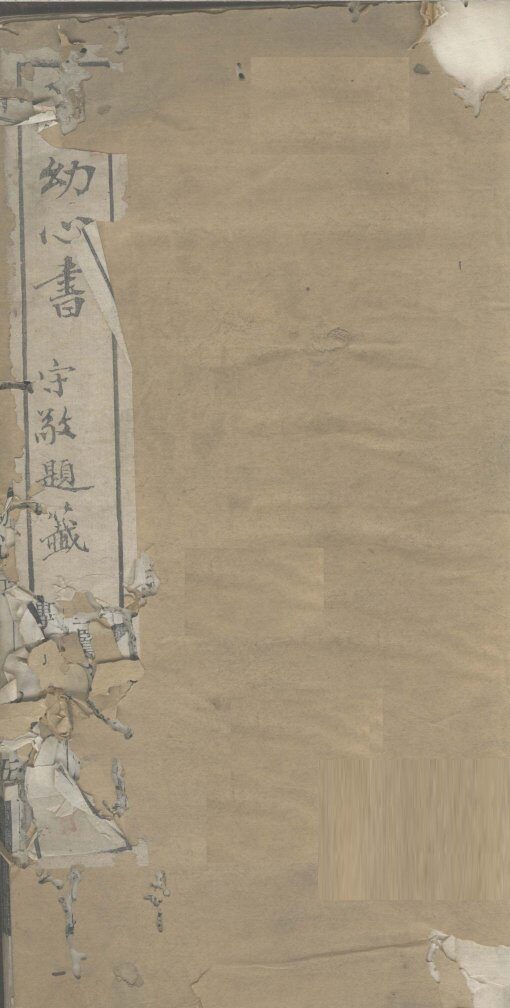 幼心書
守敬題籤